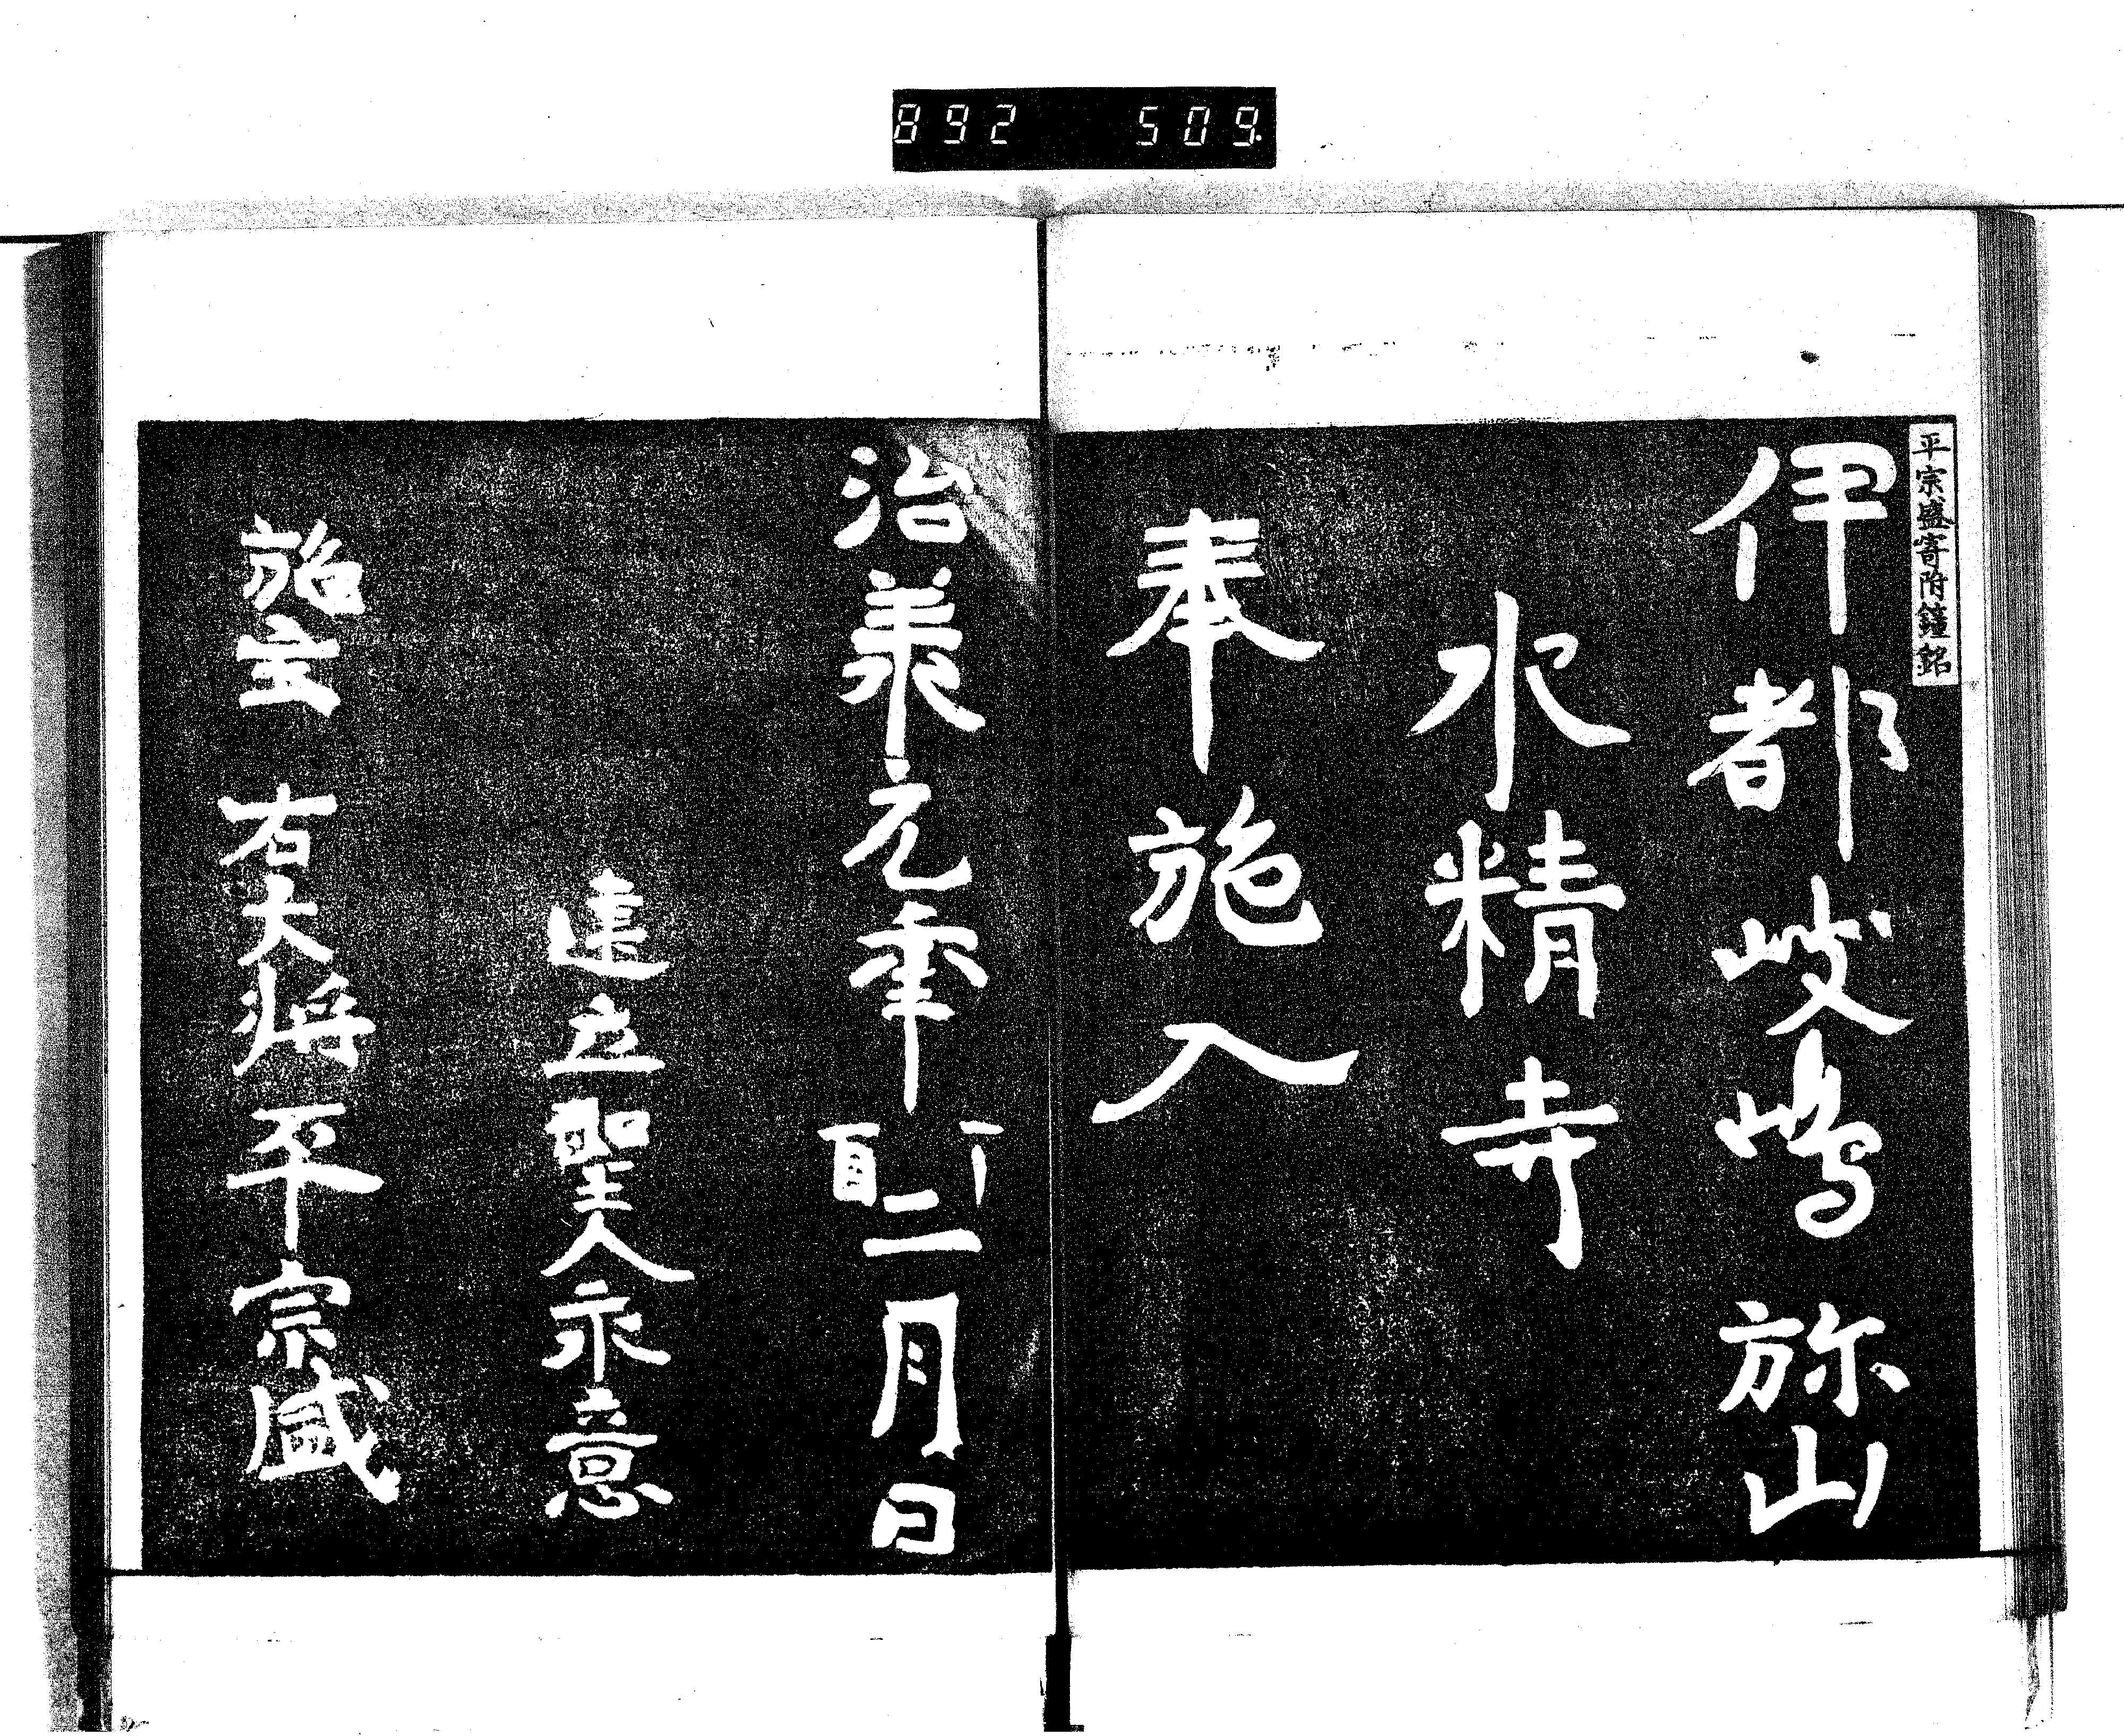 892 509.
平宗盛寄附鐘銘
伊都岐嶋弥山
水精寺
奉施入
治承元年丁酉二月日
建立聖人永意
施主 右大将平宗盛